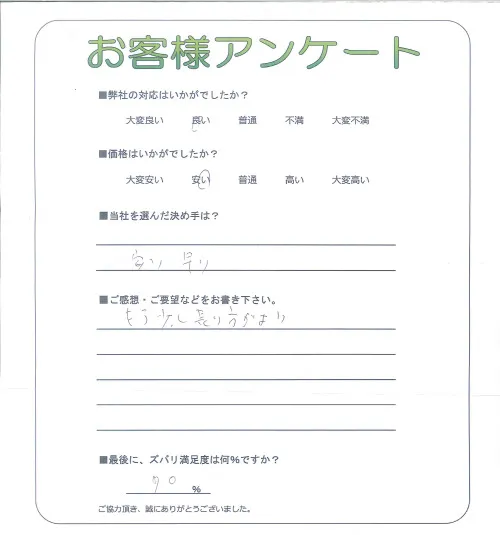 お客様アンケート
■弊社の対応はいかがでしたか？
大変良い 良い 普通 不満 大変不満
■価格はいかがでしたか？
大変安い 安い 普通 高い 大変高い
■当社を選んだ決め手は？
安い 早い
■ご感想・ご要望などをお書き下さい。
もう少し長い方がよい
■最後に、ズバリ満足度は何%ですか？
90 %
ご協力頂き、誠にありがとうございました。